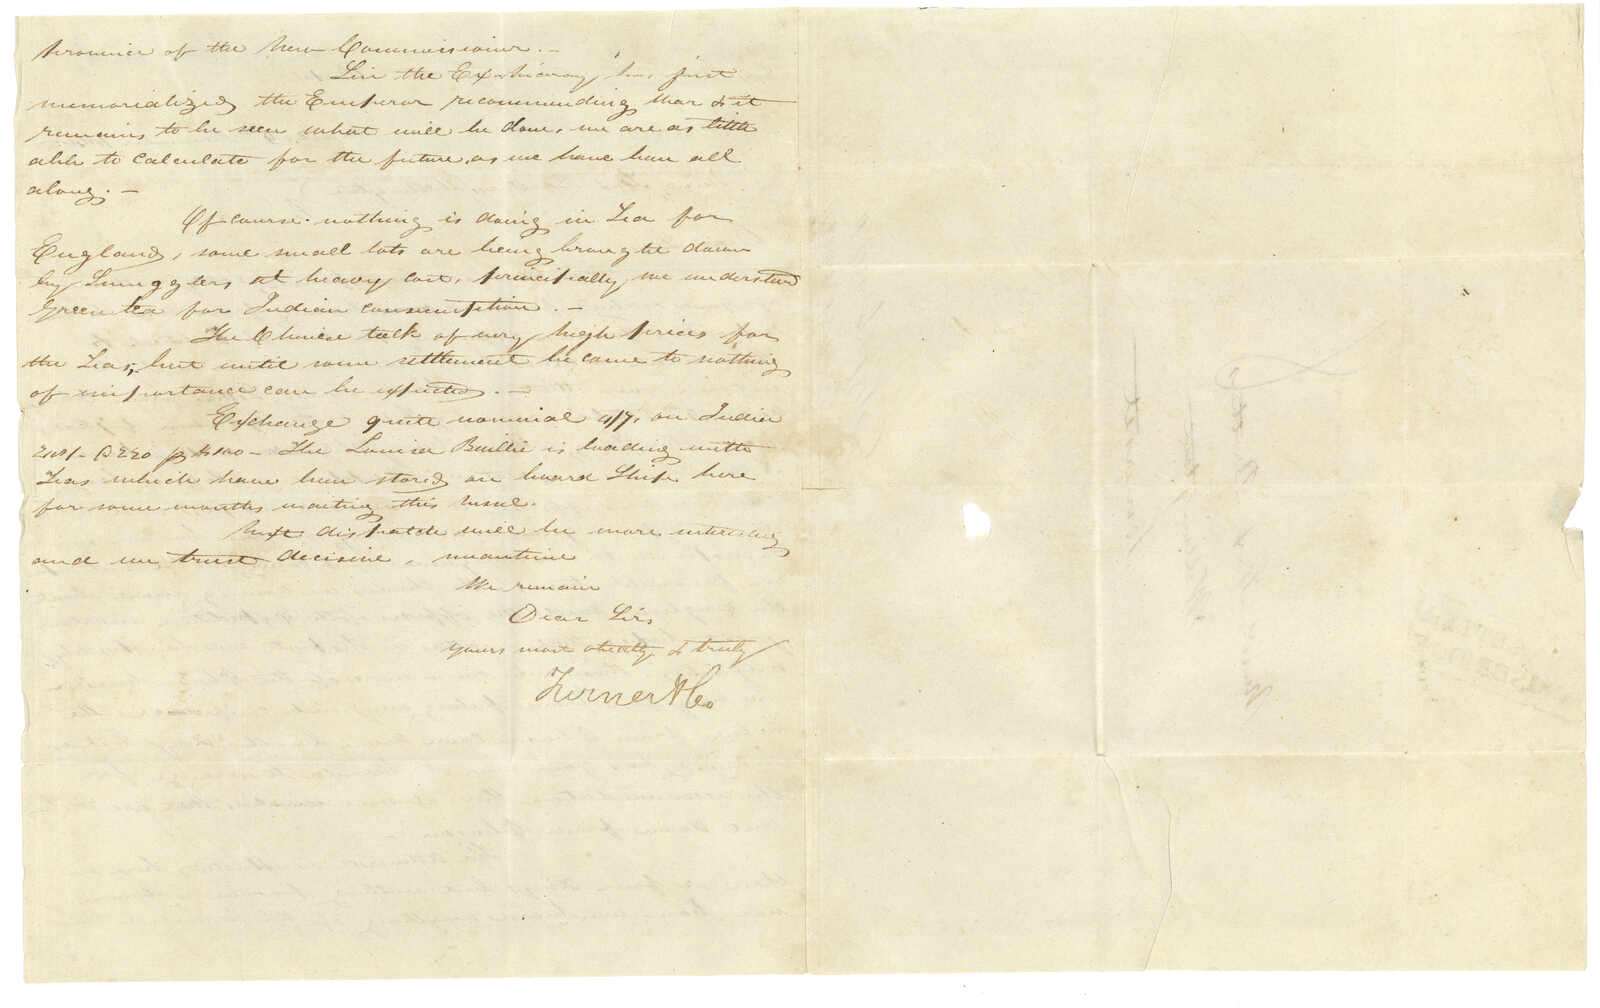 province of the New Commissioner. –
Lin the Ex-Viceroy has just
memorialized the Emperor recommending War & it
remains to be seen what will be done, we are as little
able to calculate for the future, as we have been all
along. –
Of course nothing is doing in Tea for
England, some small lots are being brought down
by Smugglers at heavy cost, principally, we understand
Green tea for Indian consumption. –
The Chinese talk of very high prices for
the Teas, but until some settlement be come to nothing
of importance can be expected. –
Exchange quite nominal 4/7, on India
220 p $100 – The Louisa Baillie is loading with
Teas which have been stored on board Ship here
for some months waiting this vessel.
Next dispatch will be more interesting
and we trust decisive, meantime
We remain
Dear Sirs
yours most obedtly & truly
Turner & Co